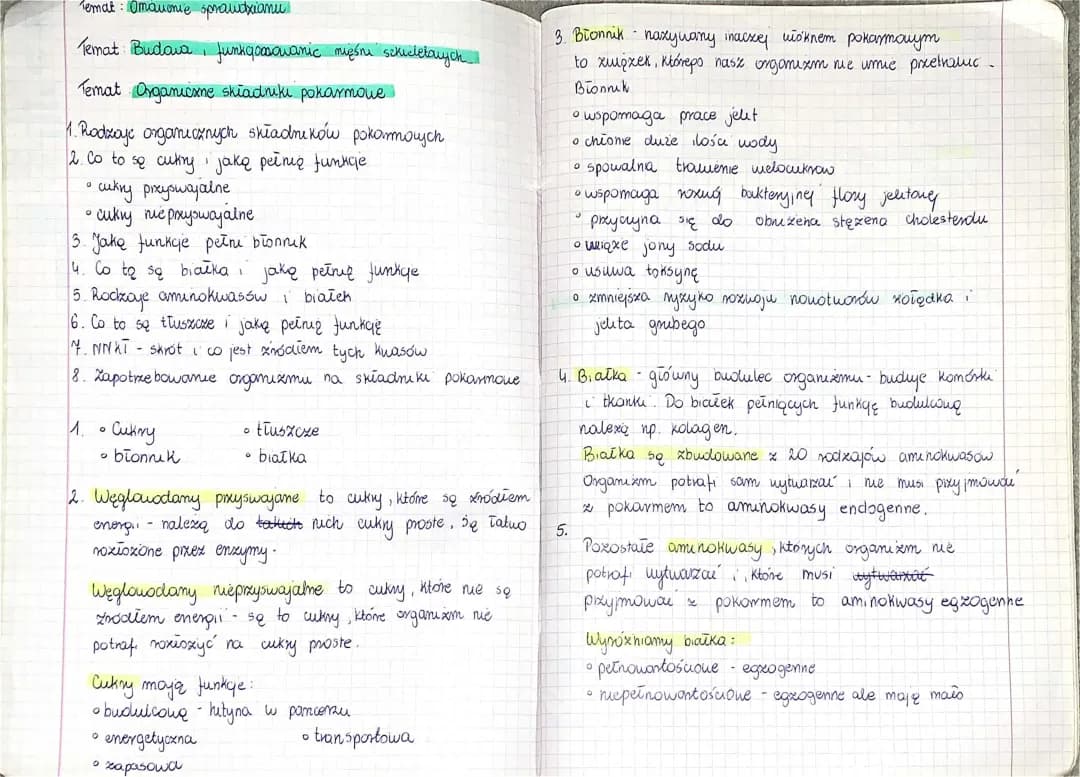 Temat: Omówienie sprawdzianu
Temat: Budowa i funkcjonowanie mięśni szkieletowych.
Temat: Organiczne składniki pokarmowe
1. Rodzaje organicznych składników pokarmowych
2. Co to są cukry i jaką pełnią funkcje
• cukry przyswajalne
• cukry nieprzyswajalne
3. Jaką funkcje pełni błonnik
4. Co to są białka i jaką pełnią funkcje
5. Rodzaje aminokwasów i białek
6. Co to są tłuszcze i jaką pełnią funkcję
7. NNKT - skrót i co jest źródłem tych kwasów
8. Zapotrzebowanie organizmu na składniki pokarmowe
1. • Cukry • tłuszcze
• błonnik • białka
2. Węglowodany przyswajane to cukry, które są źródłem
energii - należą do takich nich cukry proste. Są łatwo
rozłożone przez enzymy.
Węglowodany nieprzyswajalne to cukry, które nie są
źródłem energii - są to cukry, które organizm nie
potrafi rozłożyć na cukry proste.
Cukry mają funkcje:
• budulcową - hityna w pancerzu
• energetyczna • transportowa
• zapasowa
3. Błonnik - nazywany inaczej włóknem pokarmowym
to związek, którego nasz organizm nie umie przetrawić.
Błonnik
• wspomaga prace jelit
• chłonie duże ilości wody
• spowalnia trawienie wielocukrów
• wspomaga rozwój bakteryjnej flory jelitowej
• przyczyna się do obniżenia stężenia cholesterolu
• wiąże jony sodu
• usuwa toksynę
• zmniejsza ryzyko rozwoju nowotworów żołądka i
jelita grubego
4. Białka - główny budulec organizmu - buduje komórki
i tkanki. Do białek pełniących funkcję budulcową
należą np. kolagen.
Białka są zbudowane z 20 rodzajów aminokwasów
Organizm potrafi sam wytwarzać i nie musi przyjmować
z pokarmem to aminokwasy endogenne.
5.
Pozostałe aminokwasy, których organizm nie
potrafi wytwarzać i, które musi wytwarzać
przyjmować z pokarmem to aminokwasy egzogenne
Wyróżniamy białka:
• pełnowartościowe - egzogenne
• niepełnowartościowe - egzogenne ale mają mało